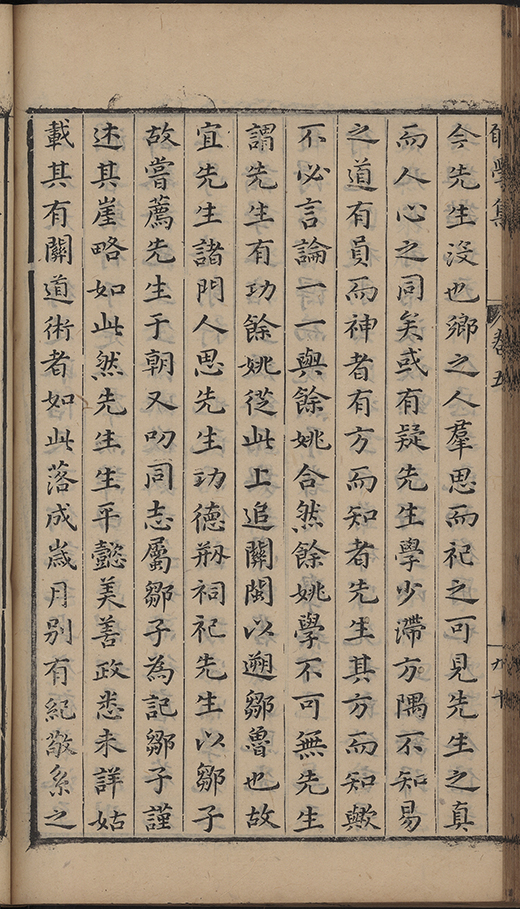 學集 卷五 九十
今先生沒也鄉之人羣思而祀之可見先生之真
而人心之同矣或有疑先生學少滯方隅不知易
之道有員而神者有方而知者先生其方而知歟
不必言論一一與餘姚合然餘姚學不可無先生
謂先生有功餘姚從此上追關閩以遡鄒魯也故
宜先生諸門人思先生功德剏祠祀先生以鄒子
故嘗薦先生于朝又叨同志屬鄒子為記鄒子謹
述其崖略如此然先生生平懿美善政悉未詳姑
載其有關道術者如此落成歲月別有紀敬系之